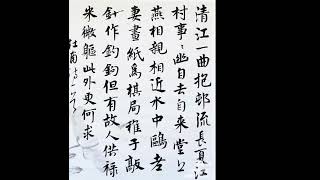 清江一曲抱邨流長夏江
村事〻幽自去自来堂上
燕相親相近水中鷗老
妻畫紙爲棋局稚子敲
針作釣鈎但有故人供禄
米微軀此外更何求